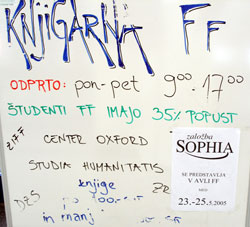 KNJIGARNA FF
ODPRTO: pon-pet 9⁰⁰-17⁰⁰
ŠTUDENTI FF IMAJO 35% POPUST
ZIFF
CENTER OXFORD
STUDIA HUMANITATIS
DZS
knjige
ZR
in manj
založba
SOPHIA
SE PREDSTAVLJA
V AVLI FF
23.-25.5.2005